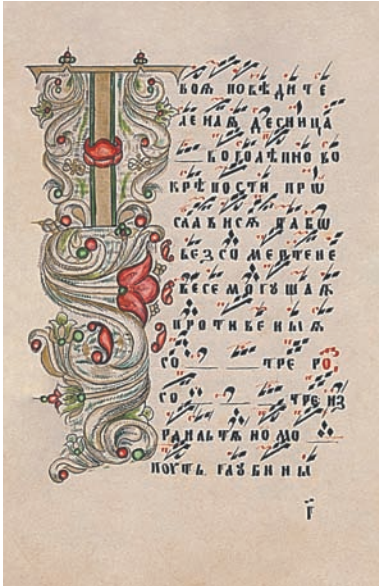 Твоя побѣдите
леная десница
боголѣпно во
крѣпости прѡ
слависѧ та бѡ
безсомертене
весемогушая
противеныя
со тре ро
со тре из
раильтѧномо
поуть глубины
г҃